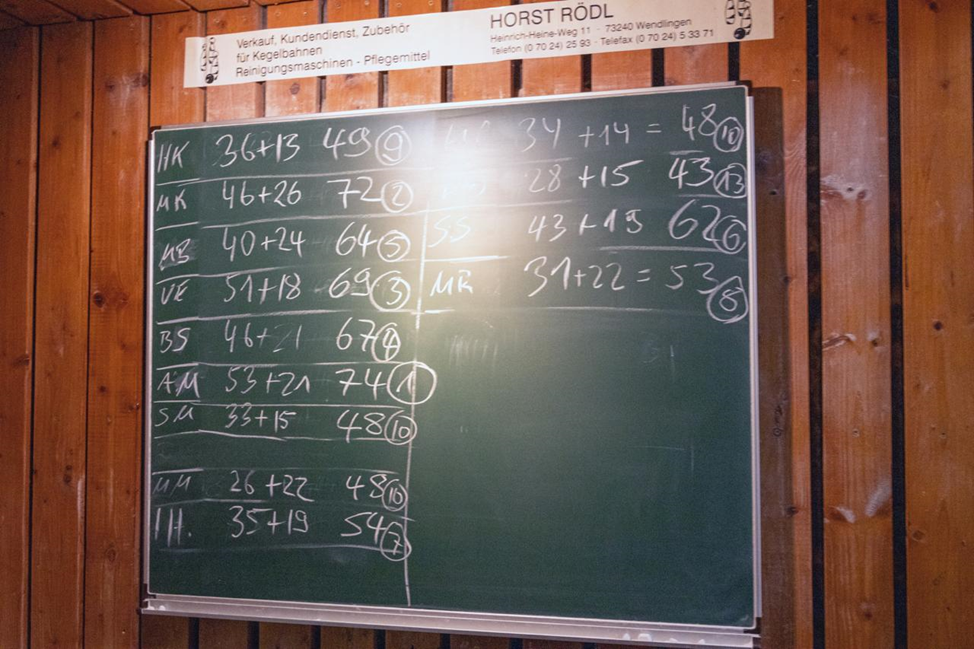 Verkauf, Kundendienst, Zubehör
für Kegelbahnen
Reinigungsmaschinen - Pflegemittel
HORST RÖDL
Heinrich-Heine-Weg 11 · 73240 Wendlingen
Telefon (0 70 24) 25 93 · Telefax (0 70 24) 5 33 71
HK 36+13 49 9
MK 46+26 72 2
MB 40+24 64 5
VE 51+18 69 3
BS 46+21 67 4
AM 53+21 74 1
SM 33+15 48 10
MM 26+22 48 10
IH. 35+19 54 7
34 +14 = 48 10
28 +15 43 13
SS 43+19 62 6
MR 31+22 = 53 8